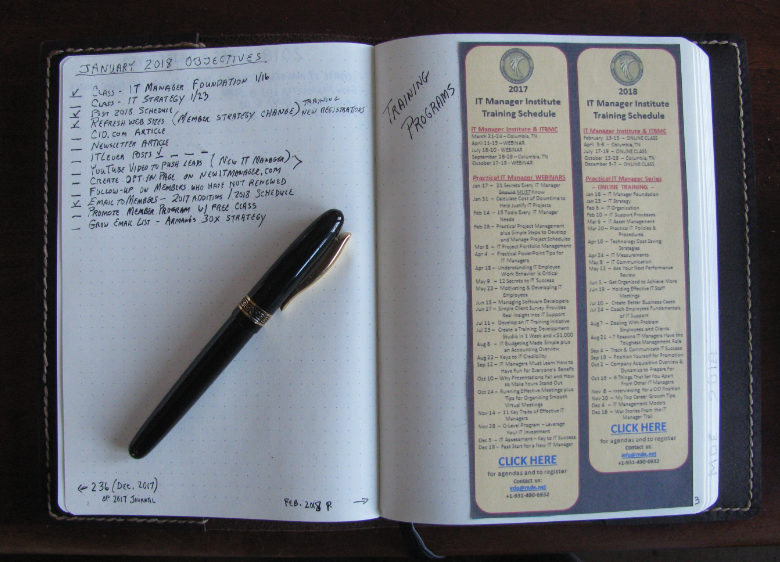 JANUARY 2018 OBJECTIVES
CLASS - IT MANAGER FOUNDATION 1/16
CLASS - IT STRATEGY 1/23
POST 2018 SCHEDULE
REFRESH WEB SITES (MEMBER STRATEGY CHANGE) TRAINING NEW REGISTRATIONS
CIO.COM ARTICLE
NEWSLETTER ARTICLE
ITLEVER POSTS
YOUTUBE VIDEO TO PUSH LEADS (NEW IT MANAGER)
CREATE OPT-IN PAGE ON NEWITMANAGER.COM
FOLLOW-UP ON MEMBERS WHO HAVE NOT RENEWED
EMAIL TO MEMBERS - 2017 ADDITIONS / 2018 SCHEDULE
PROMOTE MEMBER PROGRAM W/ FREE CLASS
GROW EMAIL LIST - 30X STRATEGY
← 236 (DEC. 2017)
2017 JOURNAL
FEB. 2018 P.
→
TRAINING
PROGRAMS
2017
IT Manager Institute
Training Schedule
IT Manager Institute & ITBMC
March 21-24 - Columbia, TN
April 11-13 - WEBINAR
July 18-20 - WEBINAR
September 26-29 - Columbia, TN
October 17-19 - WEBINAR
Practical IT Manager WEBINARS
Jan 17 - 21 Secrets Every IT Manager
Should MUST Know
Jan 31 - Calculate Cost of Downtime to
Help Justify IT Projects
Feb 14 - 15 Tools Every IT Manager
Needs
Feb 28 - Practical Project Management
plus Simple Steps to Develop
and Manage Project Schedules
Mar 8 - IT Project Portfolio Management
Apr 4 - Practical PowerPoint Tips for
IT Managers
Apr 18 - Understanding IT Employee
Work Behavior is Critical
May 9 - 12 Secrets to IT Success
May 23 - Motivating & Developing IT
Employees
Jun 13 - Managing Software Developers
Jun 27 - Simple Client Survey Provides
Real Insight into IT Support
Jul 11 - Develop an IT Training Initiative
Jul 25 - Create a Training Development
Studio in 1 Week and <$1,000
Aug 8 - IT Budgeting Made Simple plus
an Accounting Overview
Aug 22 - Keys to IT Credibility
Sep 12 - IT Managers Must Learn How to
Have Fun for Everyone's Benefit
Oct 10 - Why Presentations Fail and How
to Make Yours Stand Out
Oct 24 - Running Effective Meetings plus
Tips for Organizing Smooth
Virtual Meetings
Nov 14 - 11 Key Traits of Effective IT
Managers
Nov 28 - CIO Level Program - Leverage
Your IT Investment
Dec 5 - IT Assessment - Key to IT Success
Dec 19 - Fast Start for a New IT Manager
CLICK HERE
for agendas and to register
Contact us:
info@mde.net
+1-931-490-6932
2018
IT Manager Institute
Training Schedule
IT Manager Institute & ITBMC
February 13-15 - ONLINE CLASS
April 3-6 - Columbia, TN
July 17-19 - ONLINE CLASS
October 15-18 - Columbia, TN
December 5-7 - ONLINE CLASS
Practical IT Manager Series
- ONLINE TRAINING -
Jan 16 - IT Manager Foundation
Jan 23 - IT Strategy
Feb 6 - IT Organization
Feb 20 - IT Support Processes
Mar 6 - IT Asset Management
Mar 20 - Practical IT Policies &
Procedures
Apr 10 - Technology Cost Saving
Strategies
Apr 24 - IT Measurements
May 8 - IT Communication
May 22 - Ace Your Next Performance
Review
Jun 5 - Get Organized to Achieve More
Jun 19 - Holding Effective IT Staff
Meetings
Jul 10 - Create Better Business Cases
Jul 24 - Coach Employee Fundamentals
of IT Support
Aug 7 - Dealing With Problem
Employees and Clients
Aug 21 - 7 Reasons IT Managers Have the
Toughest Management Role
Sep 4 - Track & Communicate IT Success
Sep 18 - Position Yourself for Promotion
Oct 2 - Company Acquisition Overview &
Dynamics to Prepare for
Oct 16 - 9 Things That Set You Apart
From Other IT Managers
Nov 6 - Interviewing for a CIO Position
Nov 20 - My Top Career Growth Tips
Dec 4 - IT Management Models
Dec 18 - War Stories From the IT
Manager Trail
CLICK HERE
for agendas and to register
Contact us:
info@mde.net
+1-931-490-6932
3